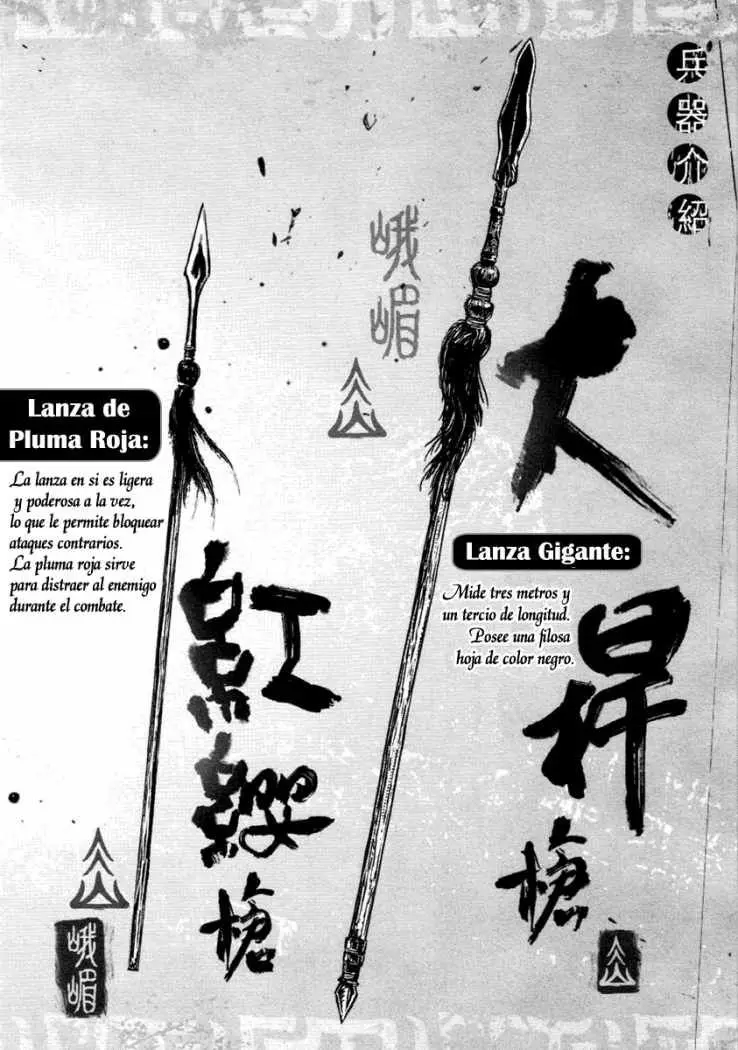 兵器介紹
峨嵋
大桿槍
Lanza de
Pluma Roja:
La lanza en si es ligera
y poderosa a la vez,
lo que le permite bloquear
ataques contrarios.
La pluma roja sirve
para distraer al enemigo
durante el combate.
Lanza Gigante:
Mide tres metros y
un tercio de longitud.
Posee una filosa
hoja de color negro.
紅纓槍
峨嵋